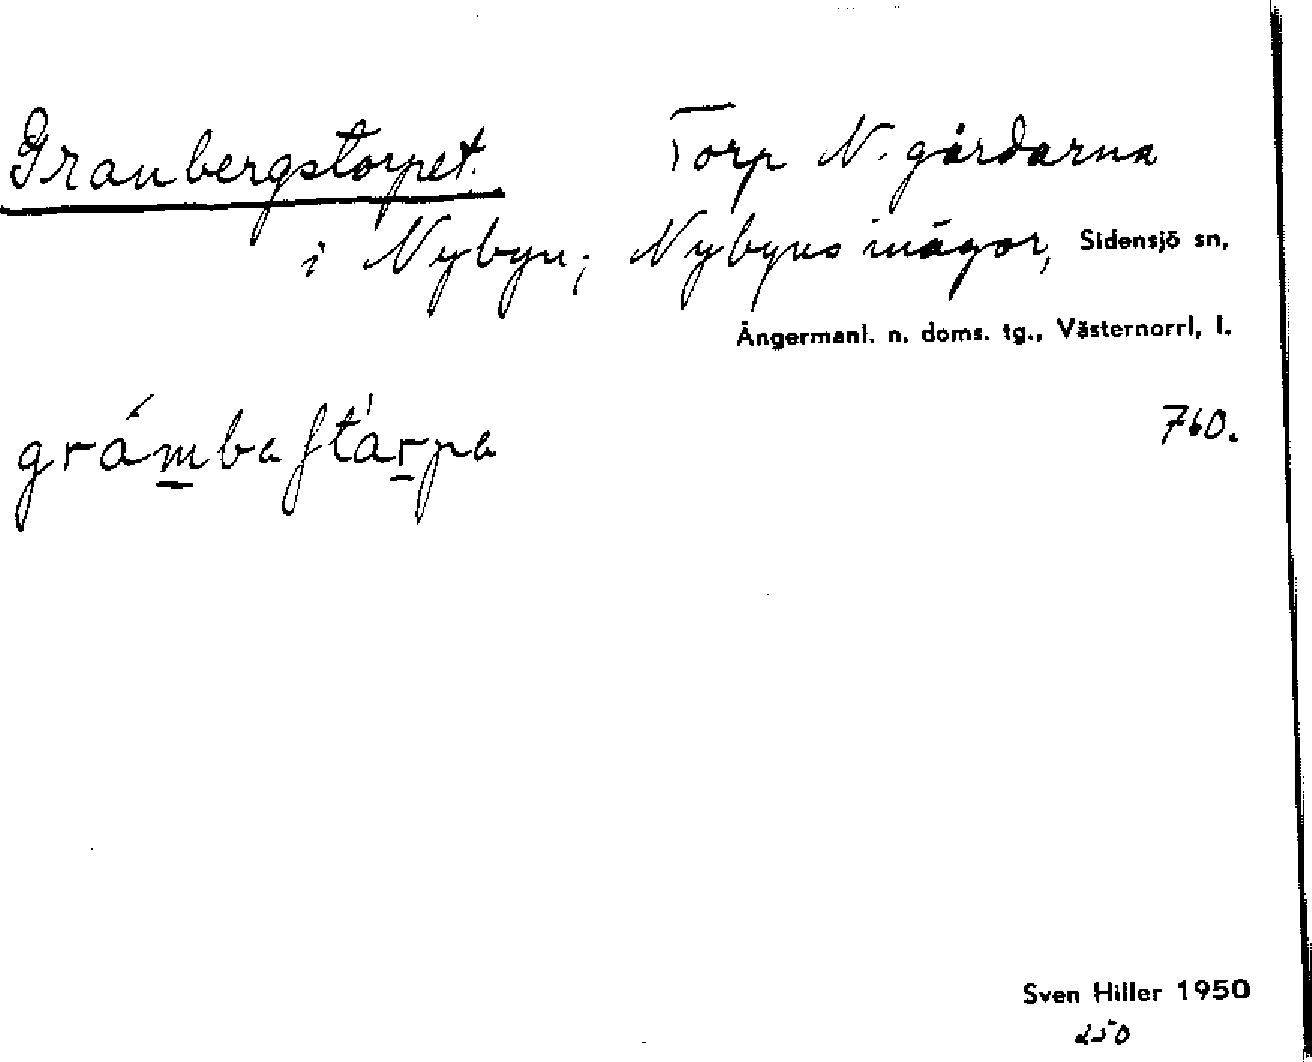 Granbergstorpet. Torp N. gårdarna
i Nybyn; Nybyns inägor, Sidensjö sn,
Ångermanl. n. doms. tg., Västernorrl, l.
760.
Sven Hiller 1950
250